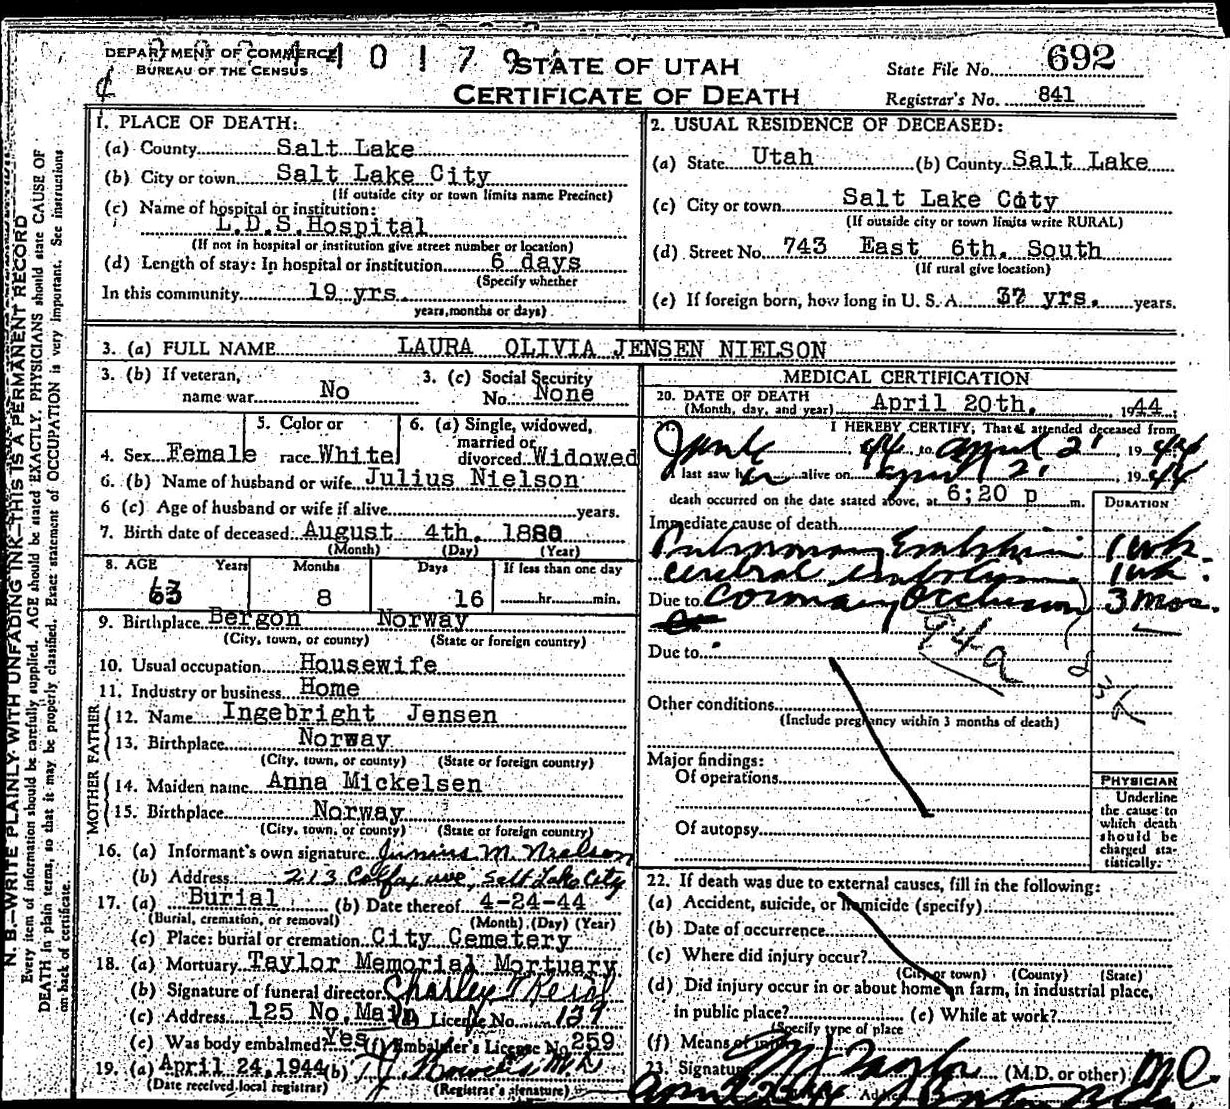 DEPARTMENT OF COMMERCE
BUREAU OF THE CENSUS
STATE OF UTAH
CERTIFICATE OF DEATH
State File No. 692
Registrar's No. 841
1. PLACE OF DEATH:
(a) County Salt Lake
(b) City or town Salt Lake City
(If outside city or town limits name Precinct)
(c) Name of hospital or institution:
L.D.S.Hospital
(If not in hospital or institution give street number or location)
(d) Length of stay: In hospital or institution 6 days
(Specify whether
In this community 19 yrs.
years, months or days)
2. USUAL RESIDENCE OF DECEASED:
(a) State Utah (b) County Salt Lake
(c) City or town Salt Lake City
(If outside city or town limits write RURAL)
(d) Street No. 743 East 6th. South
(If rural give location)
(e) If foreign born, how long in U. S. A. 37 yrs. years.
3. (a) FULL NAME LAURA OLIVIA JENSEN NIELSON
3. (b) If veteran, name war No
3. (c) Social Security No. None
4. Sex Female
5. Color or race White
6. (a) Single, widowed, married or divorced Widowed
6. (b) Name of husband or wife Julius Nielson
6 (c) Age of husband or wife if alive years.
7. Birth date of deceased: August 4th. 1880
(Month) (Day) (Year)
8. AGE Years Months Days If less than one day
63 8 16 hr. min.
9. Birthplace Bergon Norway
(City, town, or county) (State or foreign country)
10. Usual occupation Housewife
11. Industry or business Home
FATHER
12. Name Ingebright Jensen
13. Birthplace Norway
(City, town, or county) (State or foreign country)
MOTHER
14. Maiden name Anna Mickelsen
15. Birthplace Norway
(City, town, or county) (State or foreign country)
16. (a) Informant's own signature Junius M. Nielson
(b) Address 213 Colfax ave, Salt Lake City
17. (a) Burial (b) Date thereof 4-24-44
(Burial, cremation, or removal) (Month) (Day) (Year)
(c) Place: burial or cremation City Cemetery
18. (a) Mortuary Taylor Memorial Mortuary
(b) Signature of funeral director Charley
(c) Address 125 No. Main (d) License No. 139
(e) Was body embalmed? Yes (f) Embalmer's License No 259
19. (a) April 24, 1944 (b) M.D.
(Date received local registrar) (Registrar's signature)
MEDICAL CERTIFICATION
20. DATE OF DEATH
(Month, day, and year) April 20th. 1944
21. I HEREBY CERTIFY, That I attended deceased from
44 to April 2 1944
I last saw her alive on April 2 1944
death occurred on the date stated above, at 6:20 p m.
DURATION
Immediate cause of death
Pulmonary Embolism 1 wk.
cerebral embolism 1 wk.
Due to Coronary Occlusion 3 mos.
94a
Due to
Other conditions
(Include pregnancy within 3 months of death)
Major findings:
Of operations
Of autopsy
PHYSICIAN
Underline the cause to which death should be charged statistically.
22. If death was due to external causes, fill in the following:
(a) Accident, suicide, or homicide (specify)
(b) Date of occurrence
(c) Where did injury occur?
(City or town) (County) (State)
(d) Did injury occur in or about home on farm, in industrial place,
in public place? (e) While at work?
(Specify type of place
(f) Means of injury
23. Signature Taylor (M.D. or other)
April
N. B.—WRITE PLAINLY WITH UNFADING INK—THIS IS A PERMANENT RECORD
Every item of information should be carefully supplied. AGE should be stated EXACTLY. PHYSICIANS should state CAUSE OF
DEATH in plain terms, so that it may be properly classified. Exact statement of OCCUPATION is very important. See instructions
on back of certificate.